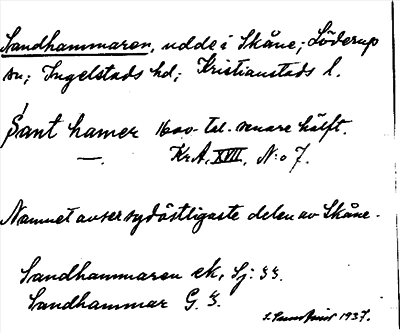 Sandhammaren, udde i Skåne; Löderup
sn; Ingelstads hd; Kristianstads l.
Sant hamer 1600-tal. senare hälft.
—. KrA, XVII, N:o 7.
Namnet avser sydöstligaste delen av Skåne.
Sandhammaren ek, Sj: 33.
Sandhammar G. 3.
1937.